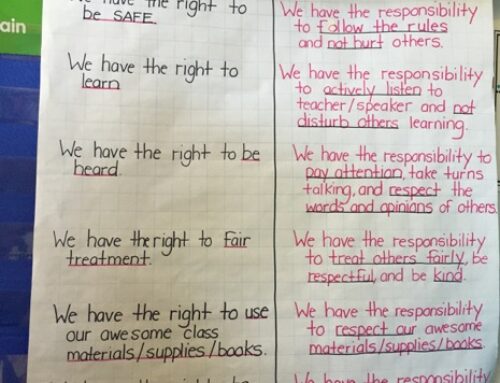 ain
We have the right to
be SAFE.
We have the right to
learn
We have the right to be
heard.
We have the right to fair
treatment.
We have the right to use
our awesome class
materials/supplies/books.
We have the responsibility
to follow the rules
and not hurt others.
We have the responsibility
to actively listen to
teacher/speaker and not
disturb others learning.
We have the responsibility to
pay attention, take turns
talking, and respect the
words and opinions of others.
We have the responsibility
to treat others fairly, be
respectful, and be kind.
We have the responsibility
to respect our awesome
materials/supplies/books.
We have the responsibility